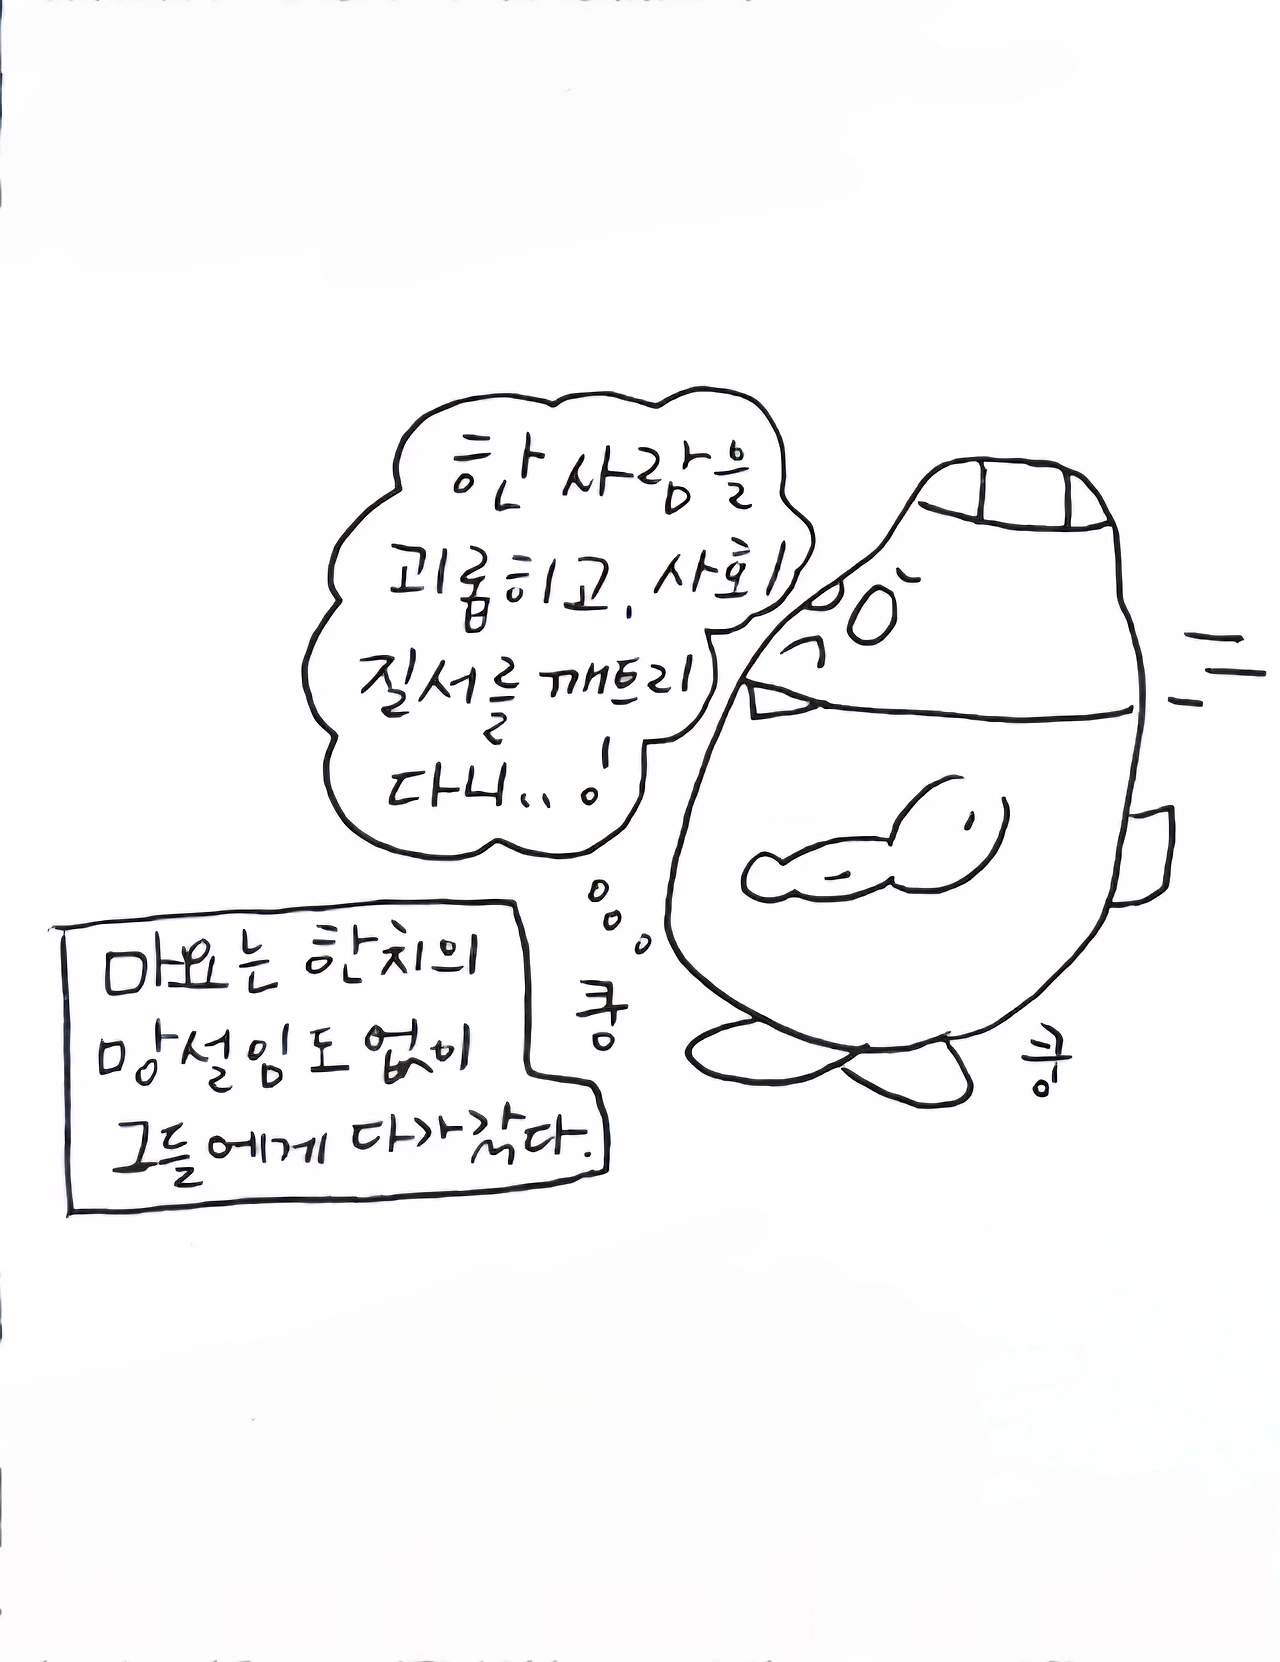 한 사람을
괴롭히고, 사회
질서를 깨트리
다니..!
마요는 한치의
망설임도 없이
그들에게 다가갔다.
쿵
쿵